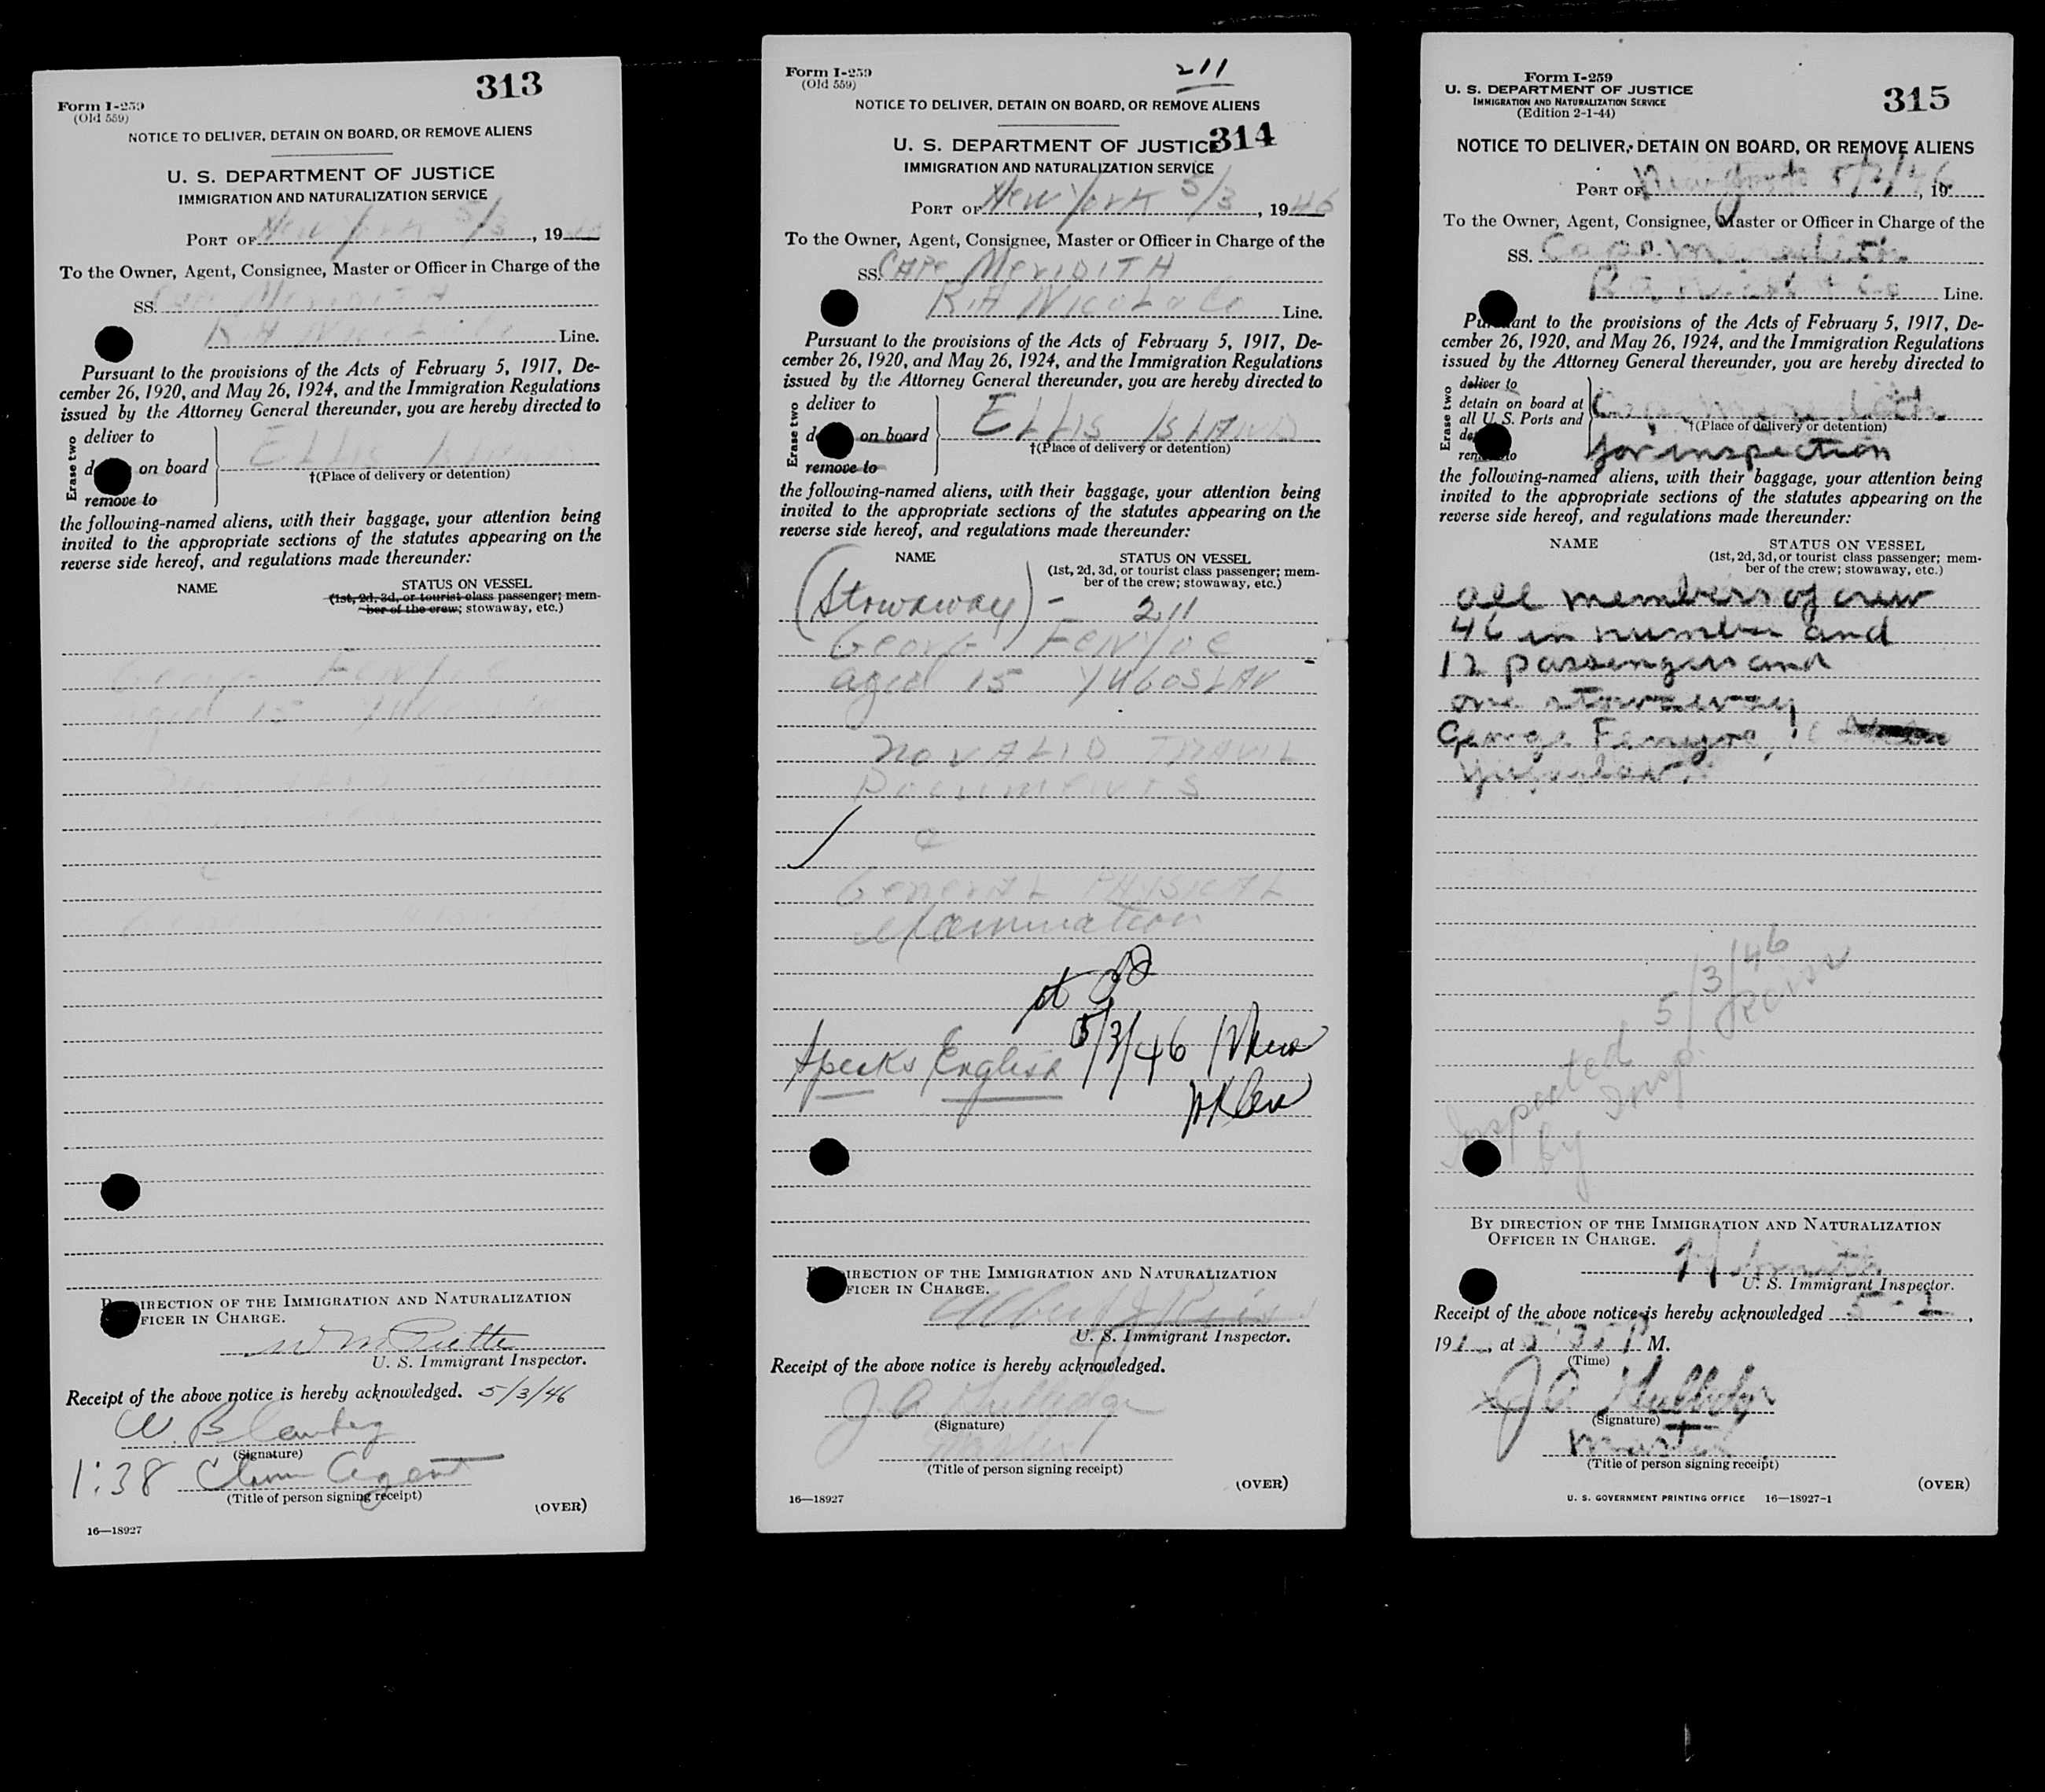 313
Form I-259
(Old 559)
NOTICE TO DELIVER, DETAIN ON BOARD, OR REMOVE ALIENS
U. S. DEPARTMENT OF JUSTICE
IMMIGRATION AND NATURALIZATION SERVICE
PORT OF New York 5/3, 19
To the Owner, Agent, Consignee, Master or Officer in Charge of the
SS. Cape MERIDITH
R.H Line.
Pursuant to the provisions of the Acts of February 5, 1917, De-
cember 26, 1920, and May 26, 1924, and the Immigration Regulations
issued by the Attorney General thereunder, you are hereby directed to
Erase two
deliver to
on board
remove to
ELLIS ISLAND
†(Place of delivery or detention)
the following-named aliens, with their baggage, your attention being
invited to the appropriate sections of the statutes appearing on the
reverse side hereof, and regulations made thereunder:
NAME
STATUS ON VESSEL
(1st, 2d, 3d, or tourist class passenger; mem-
ber of the crew; stowaway, etc.)
Georg FENYOE
aged 15
DIRECTION OF THE IMMIGRATION AND NATURALIZATION
FICER IN CHARGE.
U. S. Immigrant Inspector.
Receipt of the above notice is hereby acknowledged. 5/3/46
W. B
(Signature)
1:38 Agent
(Title of person signing receipt)
(OVER)
16—18927
Form I-259
(Old 559)
211
NOTICE TO DELIVER, DETAIN ON BOARD, OR REMOVE ALIENS
U. S. DEPARTMENT OF JUSTICE 314
IMMIGRATION AND NATURALIZATION SERVICE
PORT OF New York 5/3, 1946
To the Owner, Agent, Consignee, Master or Officer in Charge of the
SS. CAPE MERIDITH
R.H NICOL & Co Line.
Pursuant to the provisions of the Acts of February 5, 1917, De-
cember 26, 1920, and May 26, 1924, and the Immigration Regulations
issued by the Attorney General thereunder, you are hereby directed to
Erase two
deliver to
on board
remove to
ELLIS ISLAND
†(Place of delivery or detention)
the following-named aliens, with their baggage, your attention being
invited to the appropriate sections of the statutes appearing on the
reverse side hereof, and regulations made thereunder:
NAME
STATUS ON VESSEL
(1st, 2d, 3d, or tourist class passenger; mem-
ber of the crew; stowaway, etc.)
(Stowaway) - 211
Georg FENYOE
aged 15 YUGOSLAV
NO VALID TRAVIL
DOCUMENTS
GENERAL PHYSICAL
examination
5/3/46
Speaks English
DIRECTION OF THE IMMIGRATION AND NATURALIZATION
FICER IN CHARGE.
Albert J Reiss
U. S. Immigrant Inspector.
Receipt of the above notice is hereby acknowledged.
J A Gulledge
(Signature)
Master
(Title of person signing receipt)
(OVER)
16—18927
Form I-259
U. S. DEPARTMENT OF JUSTICE
IMMIGRATION AND NATURALIZATION SERVICE
(Edition 2-1-44)
315
NOTICE TO DELIVER, DETAIN ON BOARD, OR REMOVE ALIENS
PORT OF New York 5/3/46, 19
To the Owner, Agent, Consignee, Master or Officer in Charge of the
SS. Cape Meredith
R A Nicol & Co Line.
Pursuant to the provisions of the Acts of February 5, 1917, De-
cember 26, 1920, and May 26, 1924, and the Immigration Regulations
issued by the Attorney General thereunder, you are hereby directed to
Erase two
deliver to
detain on board at
all U. S. Ports and
Cape Meredith
†(Place of delivery or detention)
for inspection
the following-named aliens, with their baggage, your attention being
invited to the appropriate sections of the statutes appearing on the
reverse side hereof, and regulations made thereunder:
NAME
STATUS ON VESSEL
(1st, 2d, 3d, or tourist class passenger; mem-
ber of the crew; stowaway, etc.)
all members of crew
46 in number and
12 passengers and
one stowaway
George Fenyoe,
Yugoslav.
Inspected 5/3/46
by Insp. Reiss
BY DIRECTION OF THE IMMIGRATION AND NATURALIZATION
OFFICER IN CHARGE.
U. S. Immigrant Inspector.
Receipt of the above notice is hereby acknowledged
19 , at 5:35 P M.
(Time)
J A Gulledge
(Signature)
Master
(Title of person signing receipt)
(OVER)
U. S. GOVERNMENT PRINTING OFFICE 16—18927-1